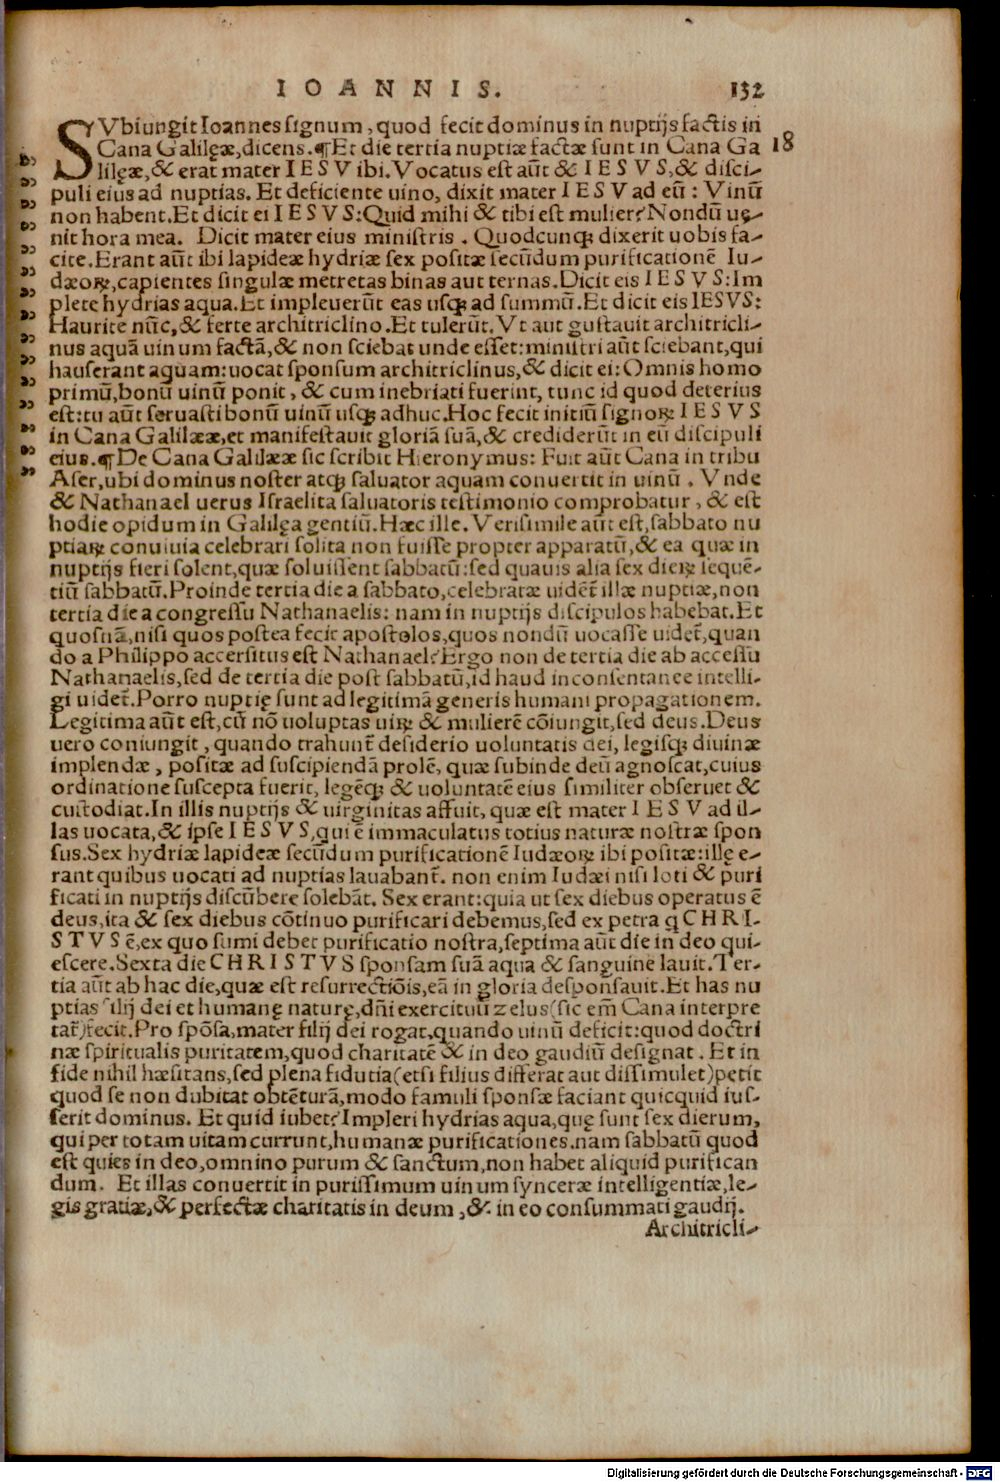 IOANNIS. 132
SVbiungit Ioannes signum, quod fecit dominus in nuptijs factis in
Cana Galilęæ, dicens. ¶Et die tertia nuptiæ factæ sunt in Cana Ga 18
lilęæ, & erat mater IESV ibi. Vocatus est aūt & IESVS, & disci-
puli eius ad nuptias. Et deficiente uino, dixit mater IESV ad eū: Vinū
non habent. Et dicit ei IESVS: Quid mihi & tibi est mulier? Nondū uę-
nit hora mea. Dicit mater eius ministris. Quodcunqꝫ dixerit uobis fa-
cite. Erant aūt ibi lapideæ hydriæ sex positæ secūdum purificationē Iu-
dæoꝝ, capientes singulæ metretas binas aut ternas. Dicit eis IESVS: Im
plete hydrias aqua. Et impleuerūt eas usqꝫ ad summū. Et dicit eis IESVS:
Haurite nūc, & ferte architriclino. Et tulerūt. Vt aut gustauit architricli-
nus aquā uinum factā, & non sciebat unde esset: ministri aūt sciebant, qui
hauserant aquam: uocat sponsum architriclinus, & dicit ei: Omnis homo
primū, bonū uinū ponit, & cum inebriati fuerint, tunc id quod deterius
est: tu aūt seruasti bonū uinū usqꝫ adhuc. Hoc fecit initiū signoꝝ IESVS
in Cana Galilææ, et manifestauit gloriā suā, & crediderūt in eū discipuli
eius. ¶De Cana Galilææ sic scribit Hieronymus: Fuit aūt Cana in tribu
Aser, ubi dominus noster atqꝫ saluator aquam conuertit in uinū. Vnde
& Nathanael uerus Israelita saluatoris testimonio comprobatur, & est
hodie opidum in Galilęa gentiū. Hæc ille. Verisimile aūt est, sabbato nu
ptiaꝝ conuiuia celebrari solita non fuisse propter apparatū, & ea quæ in
nuptijs fieri solent, quæ soluissent sabbatū: sed quauis alia sex dieꝝ sequē-
tiū sabbatū. Proinde tertia die a sabbato, celebratæ uidēt illæ nuptiæ, non
tertia die a congressu Nathanaelis: nam in nuptijs discipulos habebat. Et
quosnā, nisi quos postea fecit apostolos, quos nondū uocasse uidet̄, quan
do a Philippo accersitus est Nathanael? Ergo non de tertia die ab accessu
Nathanaelis, sed de tertia die post sabbatū, id haud inconsentanee intelli-
gi uidet̄. Porro nuptię sunt ad legitimā generis humani propagationem.
Legitima aūt est, cū nō uoluptas uiꝝ & mulierē cōiungit, sed deus. Deus
uero coniungit, quando trahunt̄ desiderio uoluntatis dei, legisqꝫ diuinæ
implendæ, positæ ad suscipiendā prolē, quæ subinde deū agnoscat, cuius
ordinatione suscepta fuerit, legēqꝫ & uoluntatē eius similiter obseruet &
custodiat. In illis nuptijs & uirginitas affuit, quæ est mater IESV ad il-
las uocata, & ipse IESVS, qui ē immaculatus totius naturæ nostræ spon
sus. Sex hydriæ lapideæ secūdum purificationē Iudæoꝝ ibi positæ: illę e-
rant quibus uocati ad nuptias lauabant̄. non enim Iudæi nisi loti & puri
ficati in nuptijs discūbere solebāt. Sex erant: quia ut sex diebus operatus ē
deus, ita & sex diebus cōtinuo purificari debemus, sed ex petra q CHRI-
STVS ē, ex quo sumi debet purificatio nostra, septima aūt die in deo qui-
escere. Sexta die CHRISTVS sponsam suā aqua & sanguine lauit. Ter-
tia aūt ab hac die, quæ est resurrectiōis, eā in gloria desponsauit. Et has nu
ptias filij dei et humanę naturę, dn̄i exercituū zelus (sic em̄ Cana interpre
tat̄) fecit. Pro spōsa, mater filij dei rogat, quando uinū deficit: quod doctri
næ spiritualis puritatem, quod charitatē & in deo gaudiū designat. Et in
fide nihil hæsitans, sed plena fidutia (etsi filius differat aut dissimulet) petit
quod se non dubitat obtēturā, modo famuli sponsæ faciant quicquid ius-
serit dominus. Et quid iubet? Impleri hydrias aqua, quę sunt sex dierum,
qui per totam uitam currunt, humanæ purificationes. nam sabbatū quod
est quies in deo, omnino purum & sanctum, non habet aliquid purifican
dum. Et illas conuertit in purissimum uinum synceræ intelligentiæ, le-
gis gratiæ, & perfectæ charitatis in deum, & in eo consummati gaudij.
Architricli-
Digitalisierung gefördert durch die Deutsche Forschungsgemeinschaft - DFG